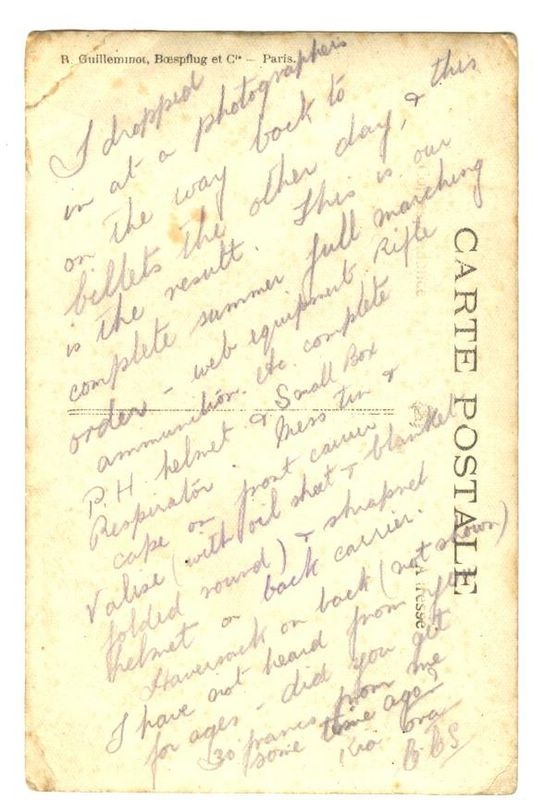 R. Guilleminot, Bœspflug et Cie — Paris.
CARTE POSTALE
Adresse
I dropped
in at a photographers
on the way back to
billets the other day, & this
is the result. This is our
complete summer full marching
order – web equipment. Rifle
ammunition. etc. complete
P.H. helmet & Small Box
Respirator. Mess tin &
cape on front carrier
Valise (with oil sheet & blanket
folded round) & shrapnel
helmet on back carrier.
Haversack on back (not shown)
I have not heard from
for ages – did you get
30 francs from me
some time ago?
Kia ora